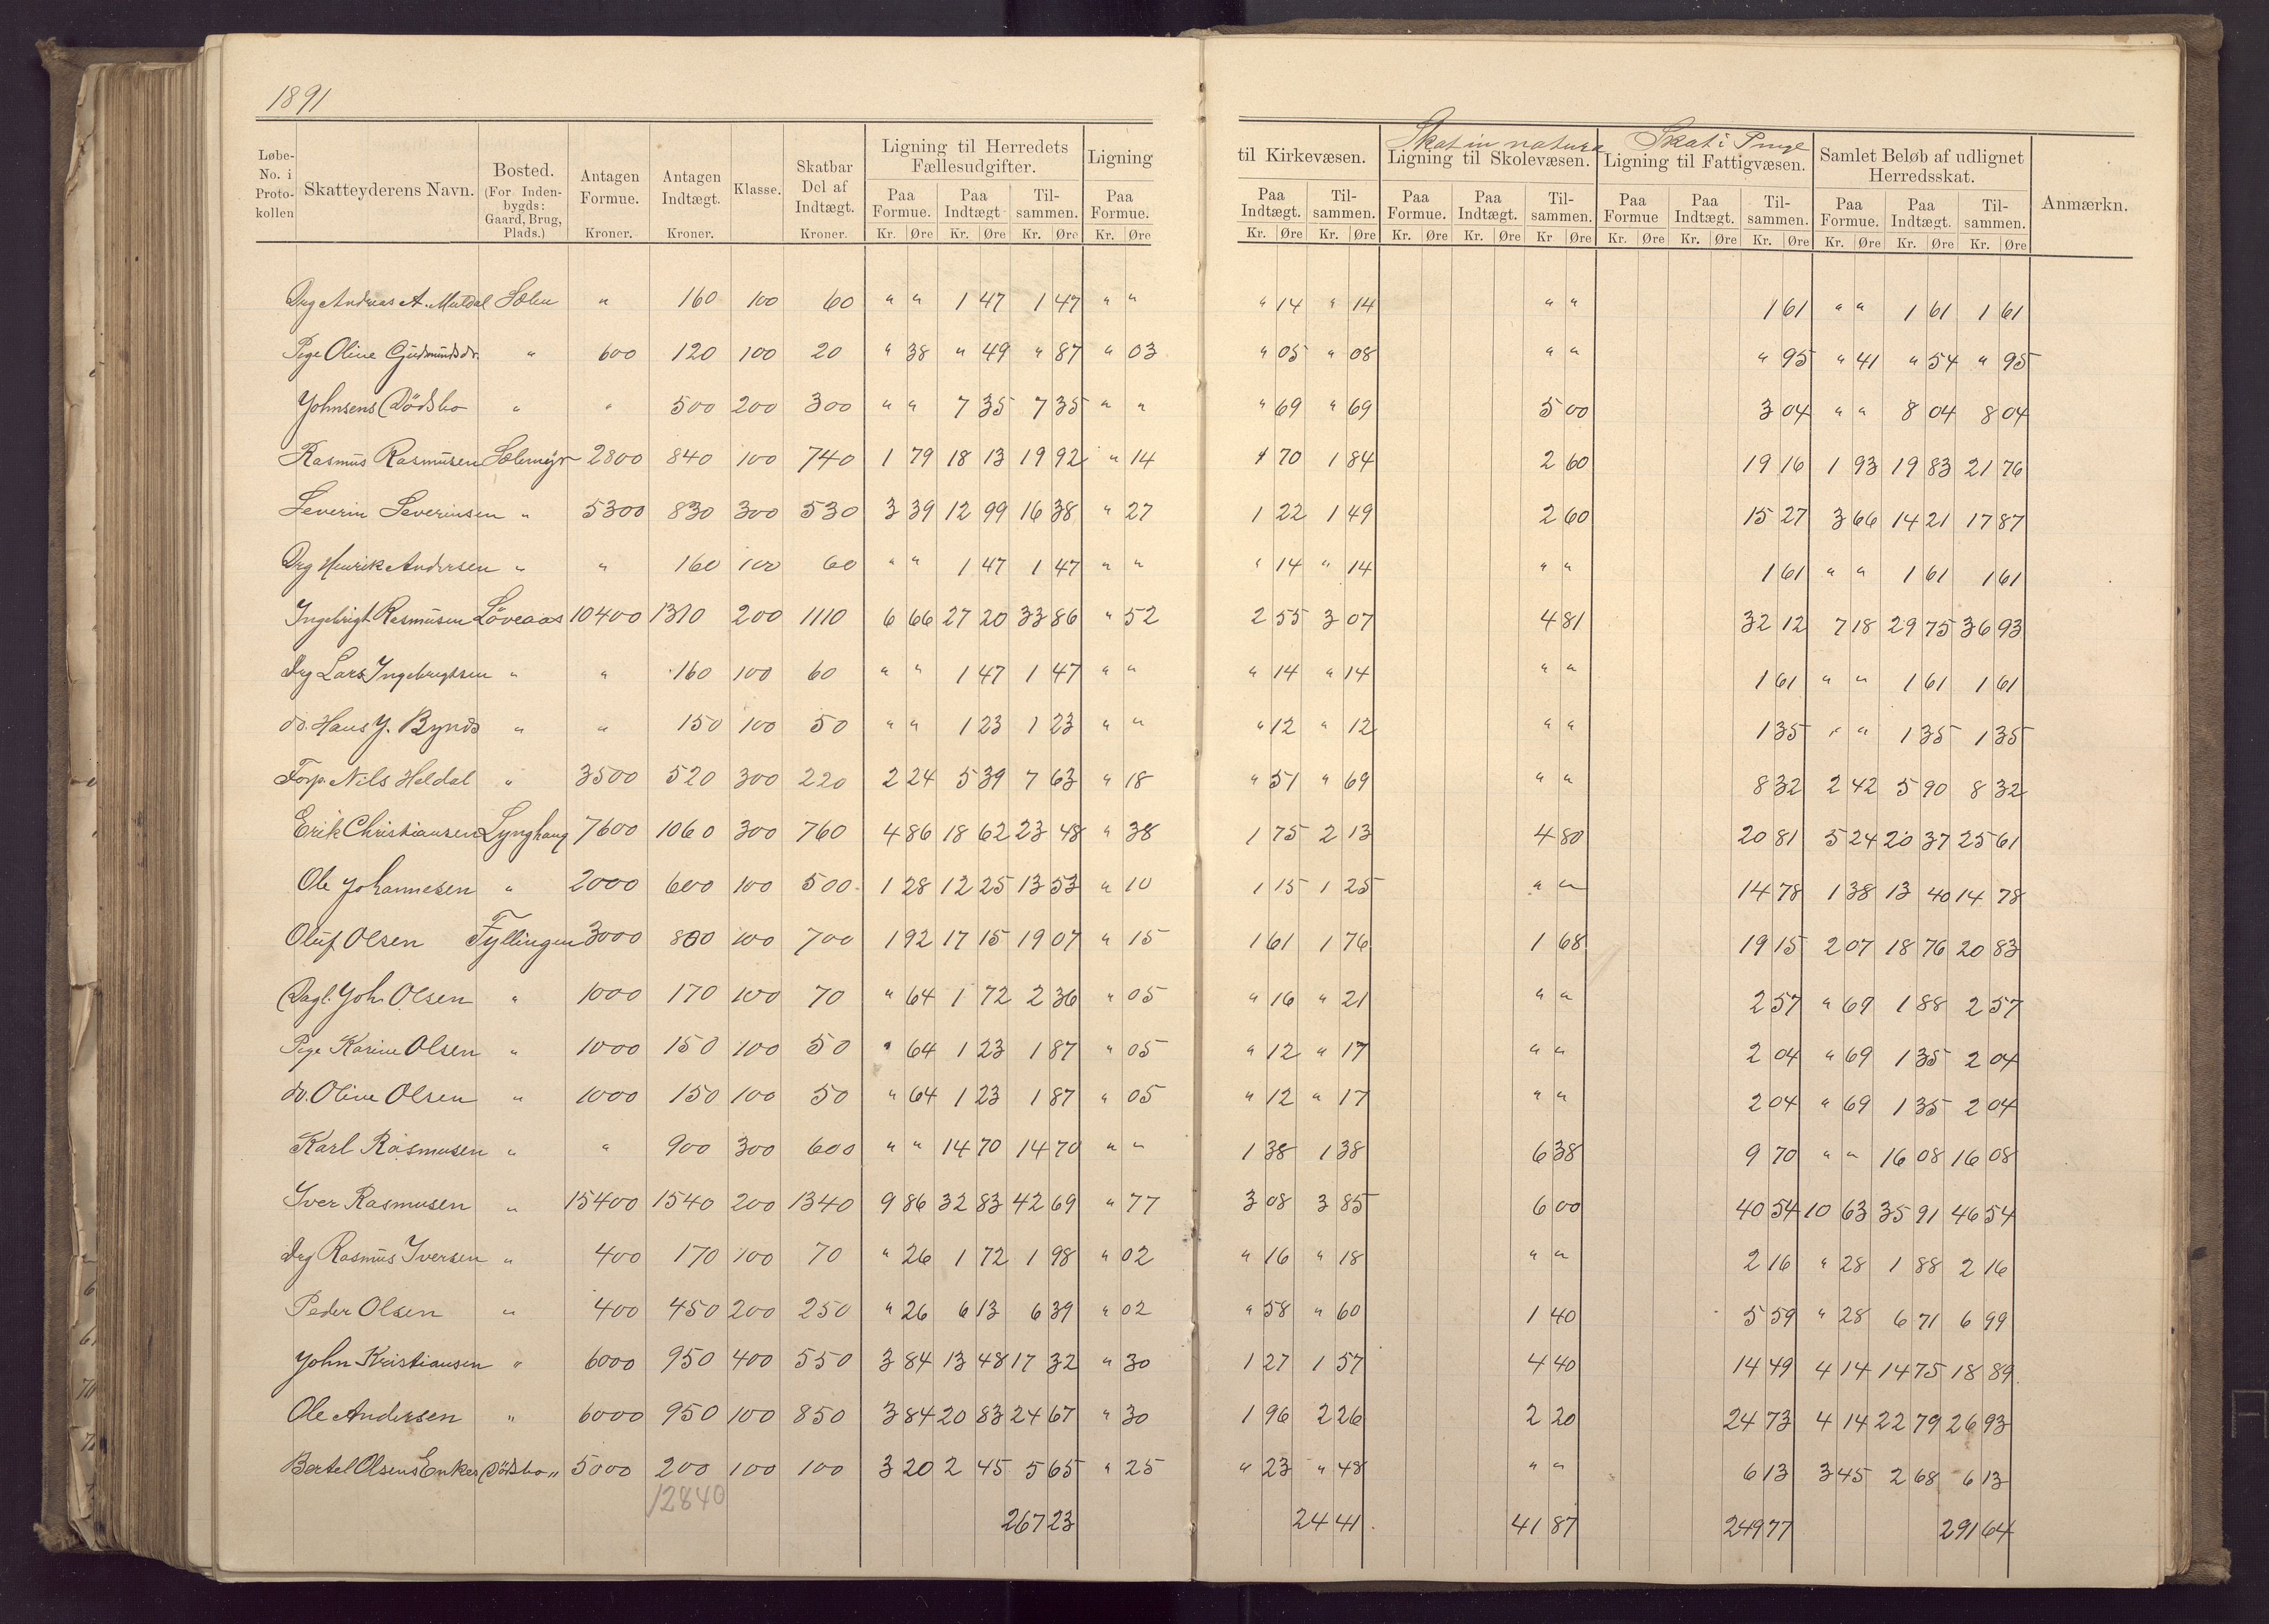 1891
Løbe-No. i Proto-kollen | Skatteyderens Navn. | Bosted. (For Inden-bygds: Gaard, Brug, Plads.) | Antagen Formue. Kroner. | Antagen Indtægt. Kroner. | Klasse. | Skatbar Del af Indtægt. Kroner. | Ligning til Herredets Fællesudgifter. Paa Formue. Kr. Øre | Paa Indtægt Kr. Øre | Til-sammen. Kr. Øre | Ligning Paa Formue. Kr. Øre | til Kirkevæsen. Paa Indtægt. Kr. Øre | Til-sammen. Kr. Øre | Skat in natura Ligning til Skolevæsen. Paa Formue. Kr. Øre | Paa Indtægt. Kr. Øre | Til-sammen. Kr Øre | Skat i Penge Ligning til Fattigvæsen. Paa Formue Kr. Øre | Paa Indtægt. Kr. Øre | Til-sammen. Kr. Øre | Samlet Beløb af udlignet Herredsskat. Paa Formue. Kr. Øre | Paa Indtægt. Kr. Øre | Til-sammen. Kr. Øre | Anmærkn.
Drg Andreas A. Meldal Sælen " 160 100 60 " " 1 47 1 47 " " " 14 " 14 " " 1 61 " " 1 61 1 61
Pige Oline Gudmundsdr. " 600 120 100 20 " 38 " 49 " 87 " 03 " 05 " 08 " " " 95 " 41 " 54 " 95
Johnsens Dödsbo " " 500 200 300 " " 7 35 7 35 " " " 69 " 69 5 00 3 04 " " 8 04 8 04
Rasmus Rasmusen Sælemyr 2800 840 100 740 1 79 18 13 19 92 " 14 1 70 1 84 2 60 19 16 1 93 19 83 21 76
Severin Severinsen " 5300 830 300 530 3 39 12 99 16 38 " 27 1 22 1 49 2 60 15 27 3 66 14 21 17 87
Drg Henrik Andersen " " 160 100 60 " " 1 47 1 47 " " " 14 " 14 " " 1 61 " " 1 61 1 61
Ingebrigt Rasmusen Löveaas 10400 1310 200 1110 6 66 27 20 33 86 " 52 2 55 3 07 4 81 32 12 7 18 29 75 36 93
Drg Lars Ingebrigtsen " " 160 100 60 " " 1 47 1 47 " " " 14 " 14 " " 1 61 " " 1 61 1 61
do. Hans J. Bynds " " 150 100 50 " " 1 23 1 23 " " " 12 " 12 " " 1 35 " " 1 35 1 35
Forp. Nils Heldal " 3500 520 300 220 2 24 5 39 7 63 " 18 " 51 " 69 " " 8 32 2 42 5 90 8 32
Erik Christiansen Lynghaug 7600 1060 300 760 4 86 18 62 23 48 " 38 1 75 2 13 4 80 20 81 5 24 20 37 25 61
Ole Johannesen " 2000 600 100 500 1 28 12 25 13 53 " 10 1 15 1 25 " " 14 78 1 38 13 40 14 78
Oluf Olsen Fyllingen 3000 800 100 700 1 92 17 15 19 07 " 15 1 61 1 76 1 68 19 15 2 07 18 76 20 83
Dagl. Joh. Olsen " 1000 170 100 70 " 64 1 72 2 36 " 05 " 16 " 21 " " 2 57 " 69 1 88 2 57
Pige Karine Olsen " 1000 150 100 50 " 64 1 23 1 87 " 05 " 12 " 17 " " 2 04 " 69 1 35 2 04
do. Oline Olsen " 1000 150 100 50 " 64 1 23 1 87 " 05 " 12 " 17 " " 2 04 " 69 1 35 2 04
Karl Rasmusen " " 900 300 600 " " 14 70 14 70 " " 1 38 1 38 6 38 9 70 " " 16 08 16 08
Iver Rasmusen " 15400 1540 200 1340 9 86 32 83 42 69 " 77 3 08 3 85 6 00 40 54 10 63 35 91 46 54
Drg Rasmus Iversen " 400 170 100 70 " 26 1 72 1 98 " 02 " 16 " 18 " " 2 16 " 28 1 88 2 16
Peder Olsen " 400 450 200 250 " 26 6 13 6 39 " 02 " 58 " 60 1 40 5 59 " 28 6 71 6 99
John Kristiansen " 6000 950 400 550 3 84 13 48 17 32 " 30 1 27 1 57 4 40 14 49 4 14 14 75 18 89
Ole Andersen " 6000 950 100 850 3 84 20 83 24 67 " 30 1 96 2 26 2 20 24 73 4 14 22 79 26 93
Bertel Olsens Enkes Dödsbo " 5000 200 100 100 3 20 2 45 5 65 " 25 " 23 " 48 " " 6 13 3 45 2 68 6 13
12840
267 23 24 41 41 87 249 77 291 64